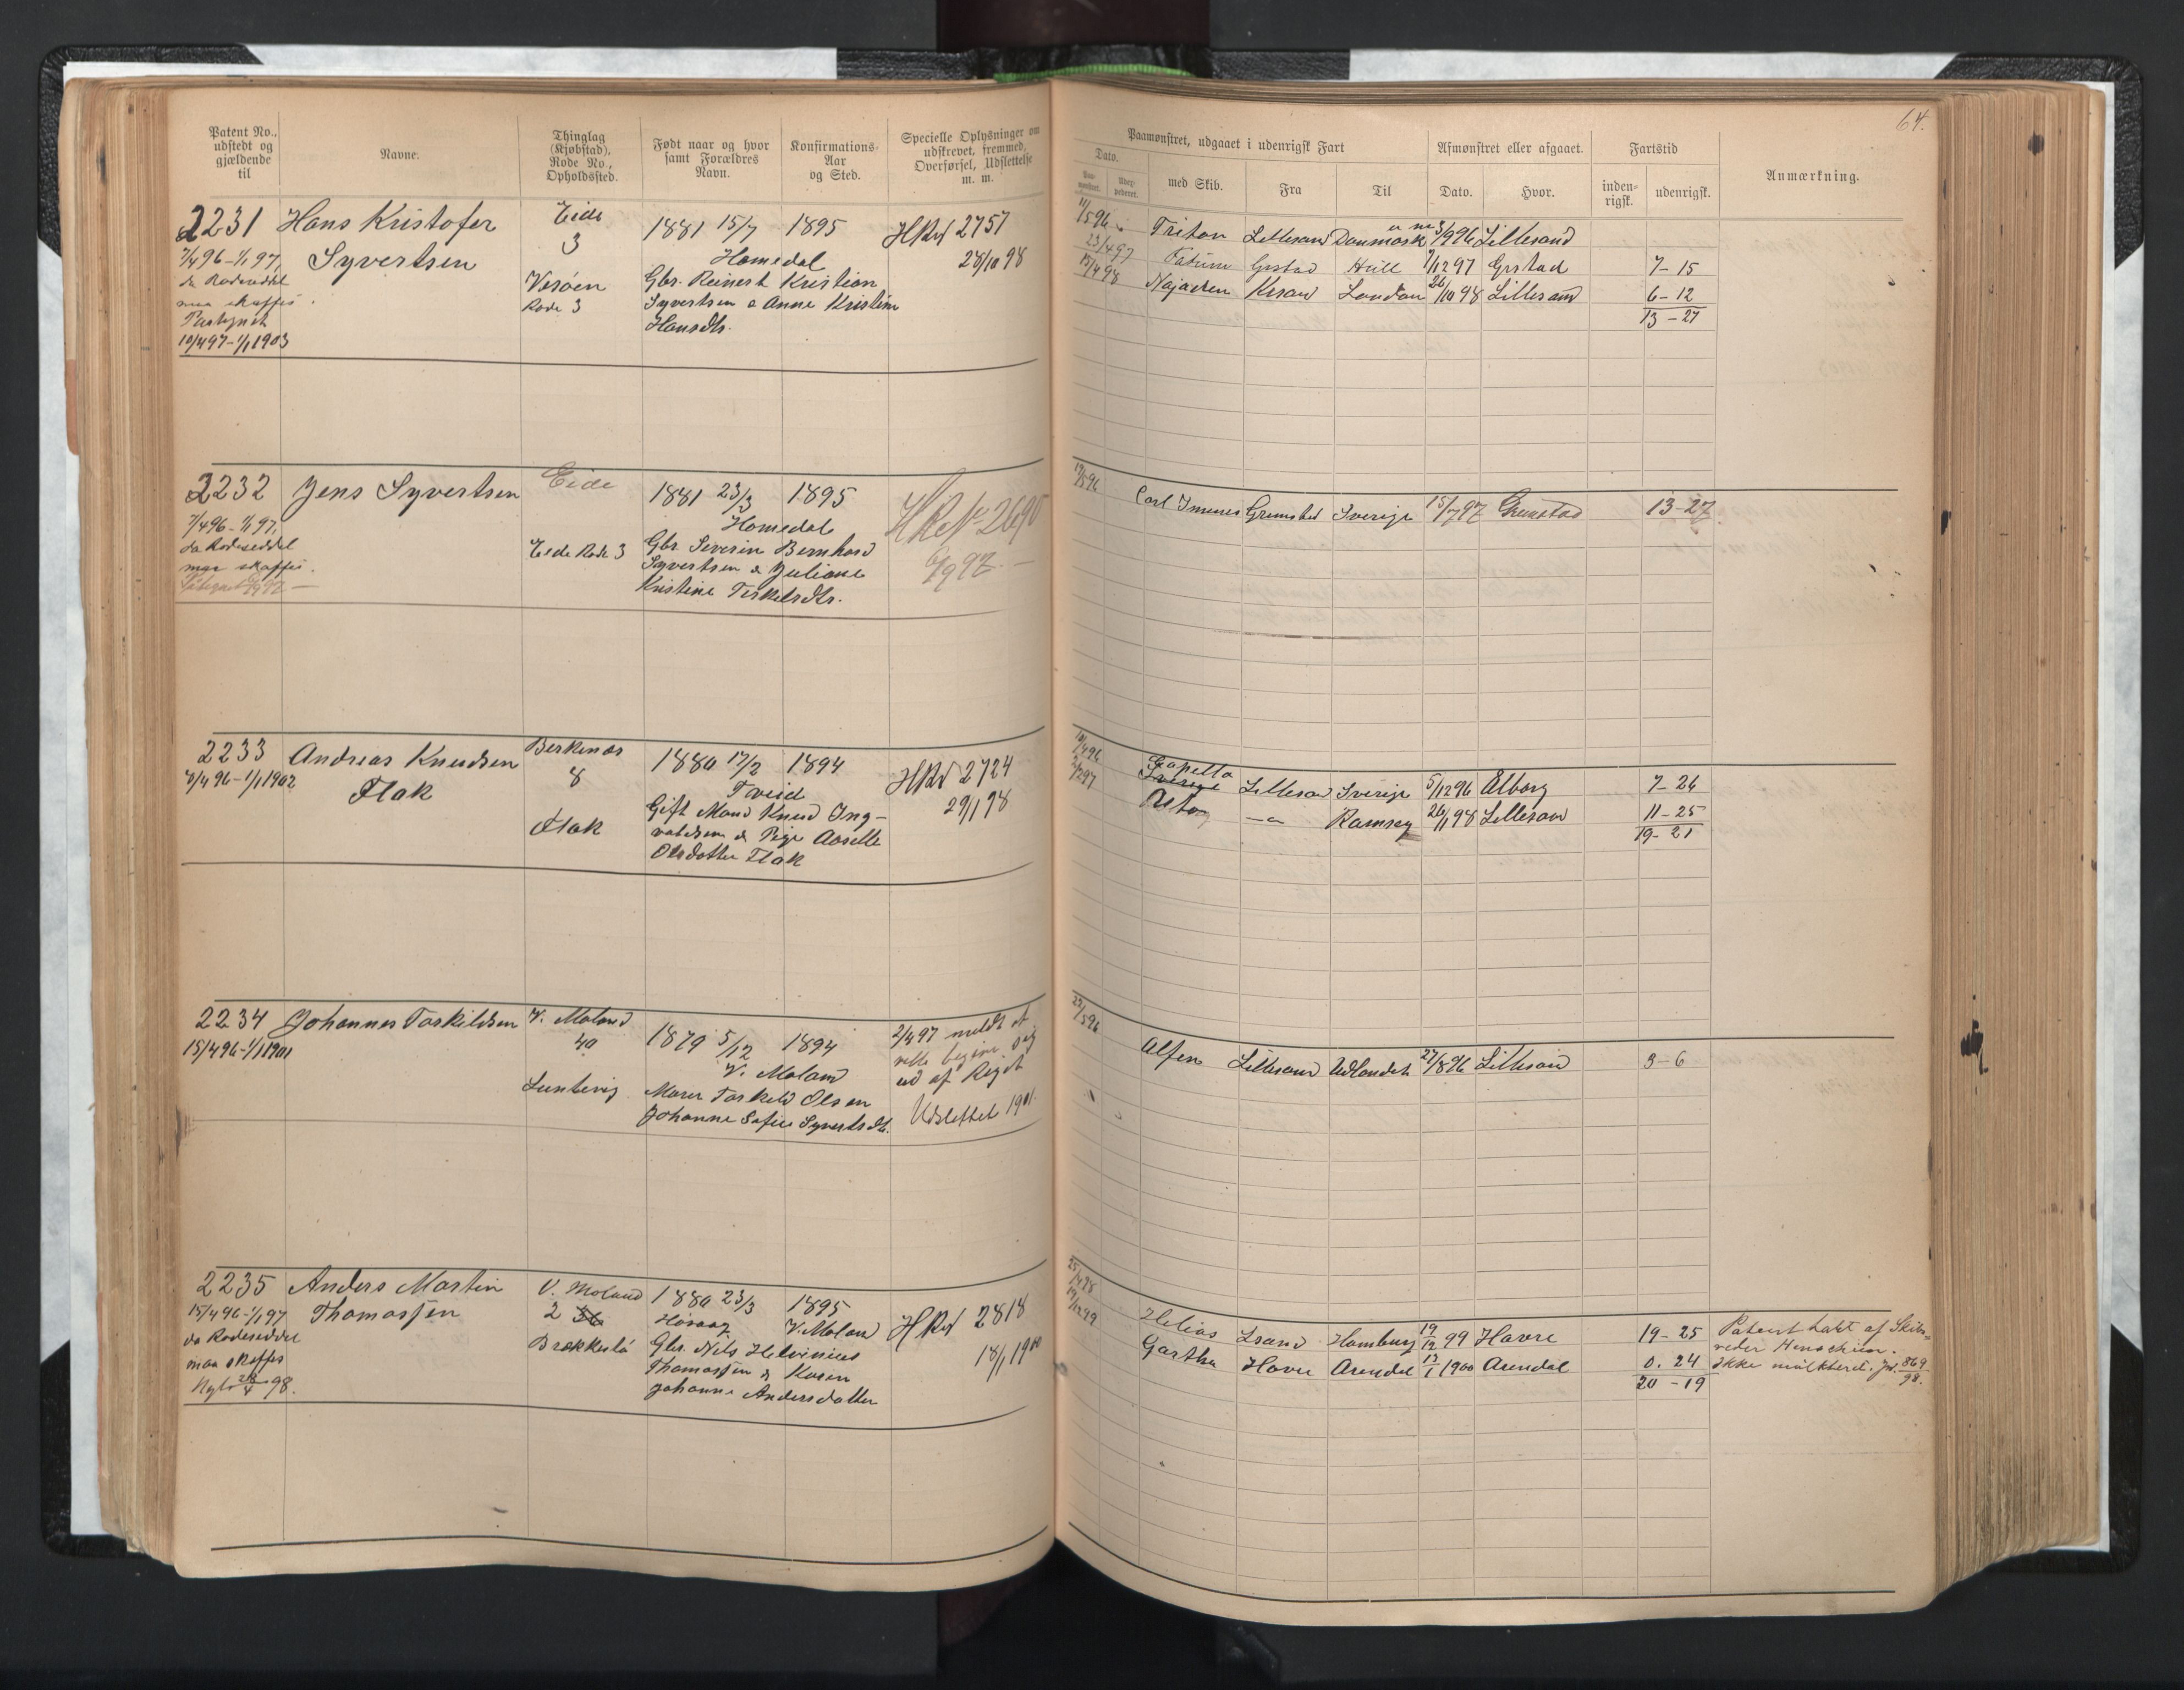 Patent No., udstedt og gjældende til
Navne.
Thinglag (Kjøbstad), Rode No., Opholdssted.
Født naar og hvor samt Forældres Navn.
Konfirmations-Aar og Sted.
Specielle Oplysninger om udskrevet, fremmed, Overførsel, Udslettelse m. m.
2231 Hans Kristofer Eide 1881 15/7 1895 HRd 2757
7/4 96-1/1 97, Syvertsen 3 Homedal 28/10 98
da Rodeseddel Vesøen Gbr. Reinert Kristian
maa skaffes. Rode 3 Syvertsen & Anne Kristine
Hansdtr.
10/4 97-1/1 1903
2232 Jens Syvertsen Eide 1881 23/3 1895 HRd No 2690
7/4 96-1/1 97, Homedal
da Rodeseddel Eide Rode 3 Gbr. Severin Bernhard
maa skaffes. Syvertsen & Juliane
Kristine Terkelsdtr.
2233 Andreas Knudsen Berkenæs 1880 17/2 1894 HRd 2724
8/4 96-1/1 1902 Flak 8 Tveid 29/1 98
Gift Mand Knud Ing-
Flak valdsen & Pige Aaselle
Olsdatter Flak
2234 Johannes Torkildsen V. Moland 1879 5/12 1894 2/4 97 meldt at
15/4 96-1/1 1901 40 V. Moland ville begive sig
ud af Riget
Luntevig Murer Torkild Olsen
Johanne Sofie Syvertsdtr. Udslettet 1901.
2235 Anders Martin V. Moland 1880 23/3 1895 HRd 2818
15/4 96-1/1 97 Thomassen 2 Høvaag V. Moland 18/1 1900
da Rodeseddel Brækkestø Gbr. Nils Helvinius
maa skaffes Thomassen & Karen
98. Johanne Andersdatter
64.
Paamønstret, udgaaet i udenrigsk Fart
Afmønstret eller afgaaet.
Fartstid
Anmærkning.
Dato.
med Skib.
Fra
Til
Dato.
Hvor.
inden-rigsk.
udenrigsk.
11/5 96 Triton Lillesand Danmark 3/9 96 Lillesand
23/4 97 Fatum Grstad Hull 7/12 97 Grstad 7-15
15/4 98 Najaden Krsand London 26/10 98 Lillesand 6-12
13-27
17/5 96 Carl Grimstad Sverige 15/7 97 Grimstad 13-27
10/4 96 Capella Lillesand Sverige 5/12 96 Ålborg 7-26
2/2 97 Ramsey 26/1 98 Lillesand 11-25
19-21
22/5 96 Alfen Lillesand Udlandet 27/8 96 Lillesand 3-6
25/4 98 Helios Lsand Hamburg 19/12 99 Havre 19-25 Patent af Skibs-
reder
19/12 99 Gartha Havre Arendal 13/1 1900 Arendal 0.24 Ikke Jnl. 869/98.
20-19